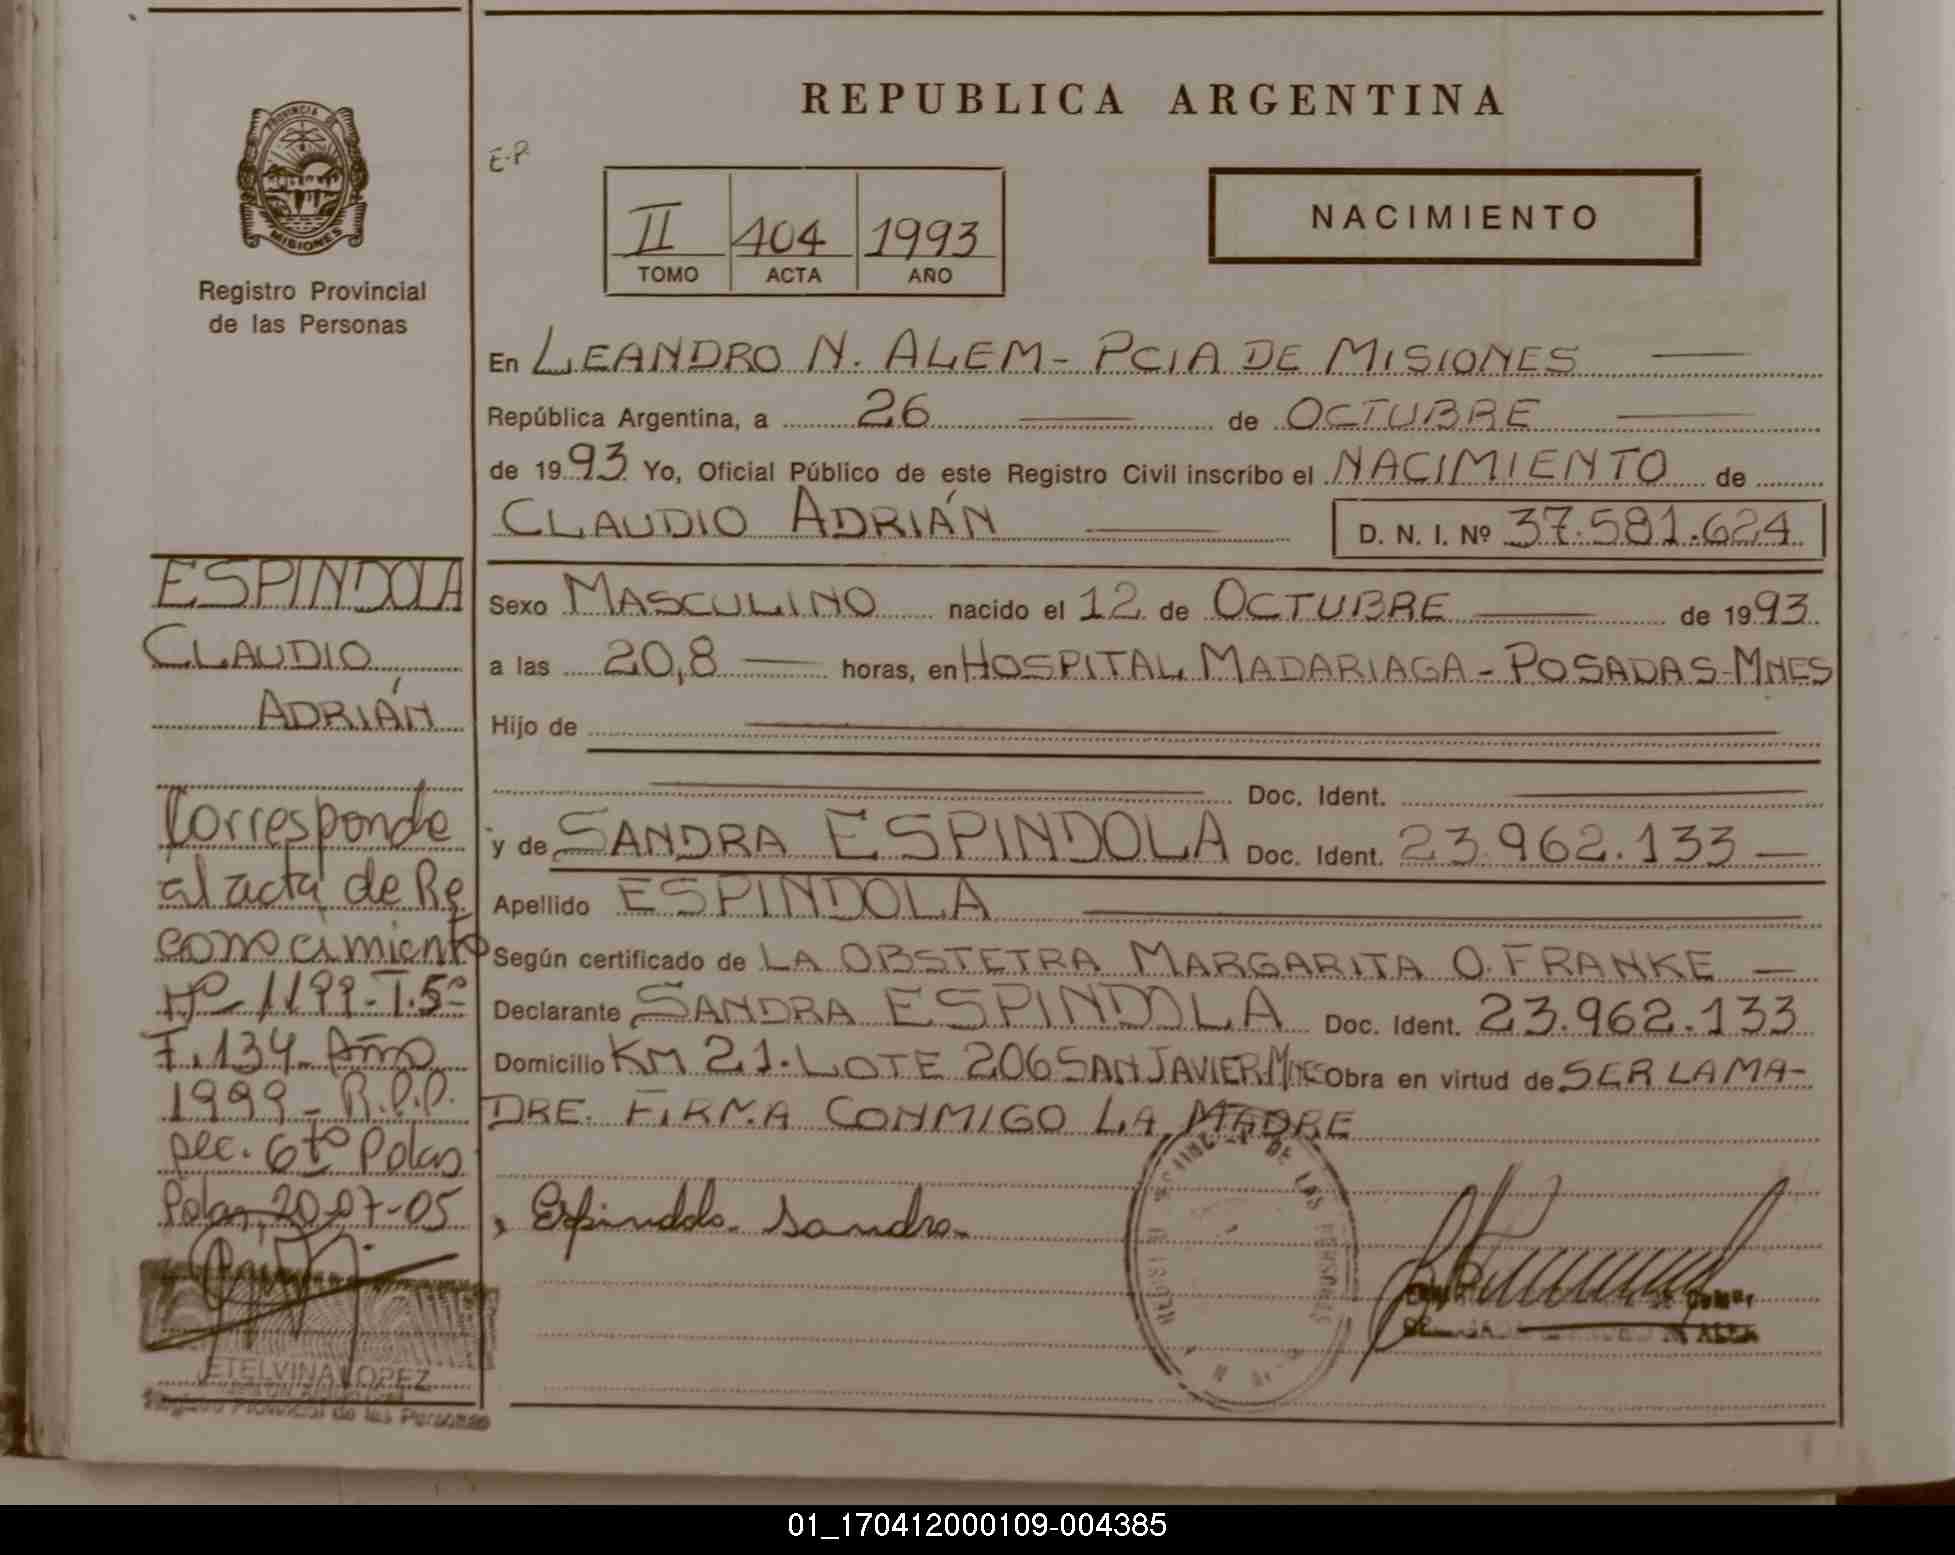 REPUBLICA ARGENTINA
PROVINCIA DE
MISIONES
Registro Provincial
de las Personas
E-P
II 404 1993
TOMO ACTA AÑO
NACIMIENTO
En LEANDRO N. ALEM - PCIA DE MISIONES
República Argentina, a 26 de OCTUBRE
de 1993 Yo, Oficial Público de este Registro Civil inscribo el NACIMIENTO de
CLAUDIO ADRIÁN D. N. I. Nº 37.581.624
Sexo MASCULINO nacido el 12 de OCTUBRE de 1993
a las 20,8 horas, en HOSPITAL MADARIAGA - POSADAS - MNES
Hijo de
Doc. Ident.
y de SANDRA ESPINDOLA Doc. Ident. 23.962.133
Apellido ESPINDOLA
Según certificado de LA OBSTETRA MARGARITA O. FRANKE
Declarante SANDRA ESPINDOLA Doc. Ident. 23.962.133
Domicilio KM 21. LOTE 206 SAN JAVIER MNES Obra en virtud de SER LA MA-
DRE. FIRMA CONMIGO LA MADRE
Espindola Sandra
DE LAS PERSONAS
ESPINDOLA
CLAUDIO
ADRIÁN
Corresponde
al acta de Re
conocimiento
Nº 1199 - T. 5º
F. 134 - Año
1999 - R.P.P.
Sec. 6ta Pdas
Pdas, 20-07-05
ETELVINA LOPEZ
Registro Provincial de las Personas
01_170412000109-004385